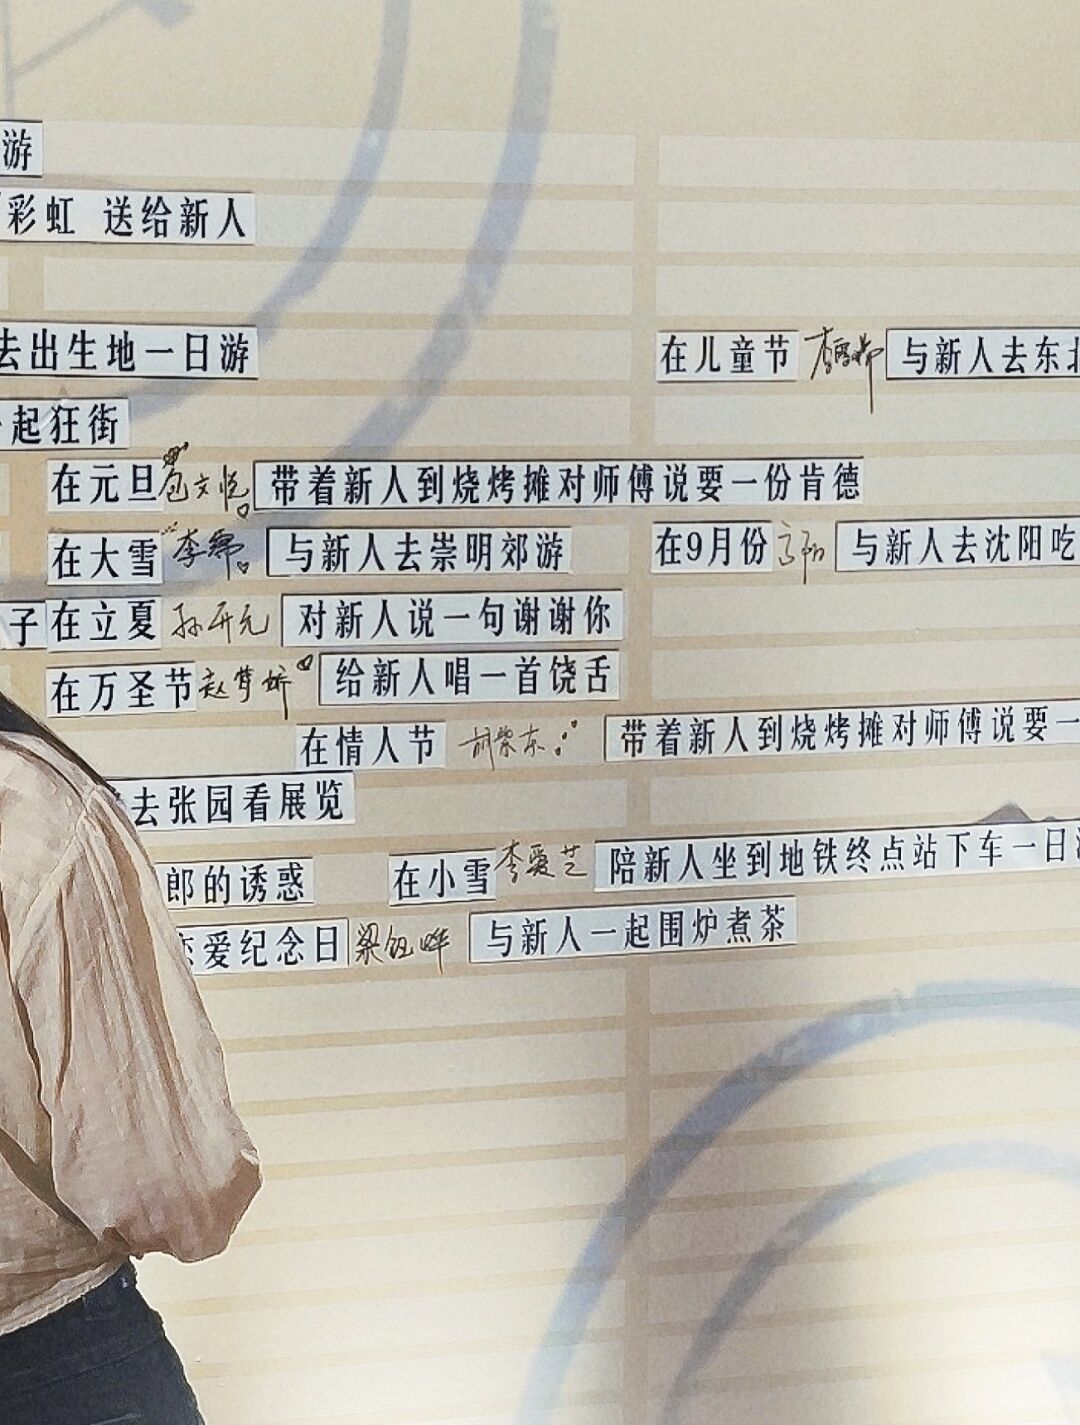 游
彩虹 送给新人
去出生地一日游
在儿童节 与新人去东北
起狂街
在元旦 包文悦 带着新人到烧烤摊对师傅说要一份肯德
在大雪 李 与新人去崇明郊游
在9月份 与新人去沈阳吃
子 在立夏 孙开元 对新人说一句谢谢你
在万圣节 赵梦娇 给新人唱一首饶舌
在情人节 胡紫东 带着新人到烧烤摊对师傅说要一
去张园看展览
郎的诱惑 在小雪 李爱芝 陪新人坐到地铁终点站下车一日游
恋爱纪念日 梁钰 与新人一起围炉煮茶